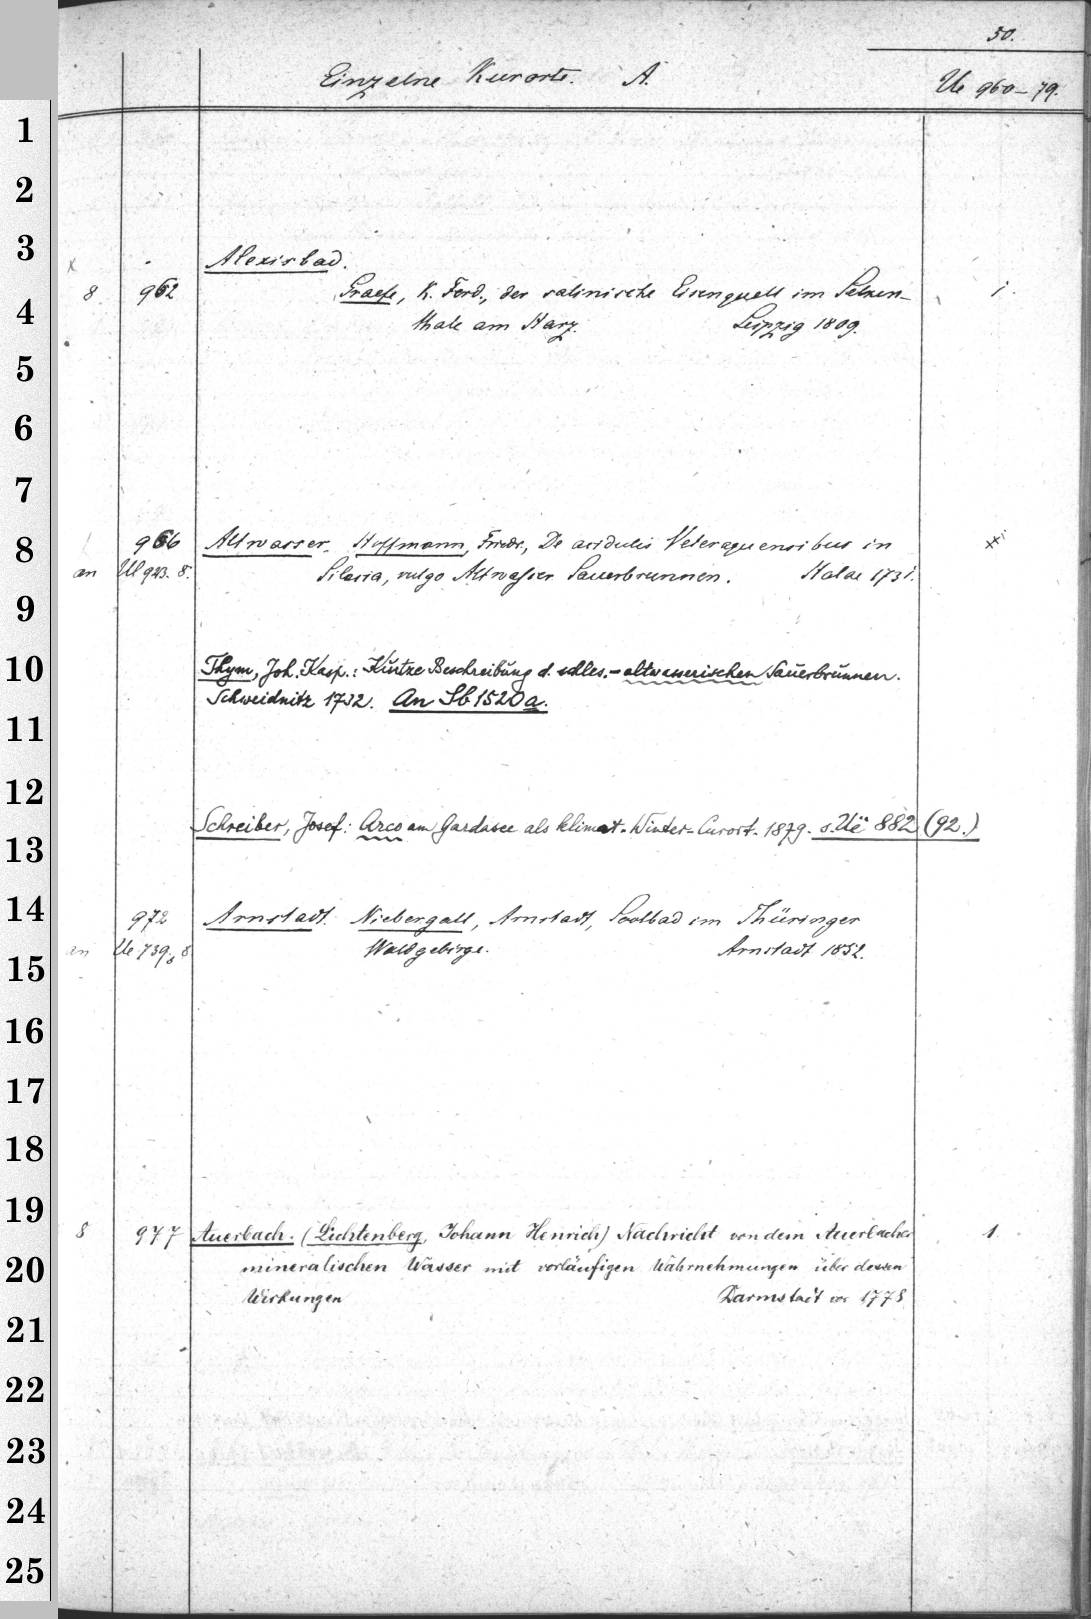 50.
Einzelne Kurorte. A.
Ue 960-79.
1
2
3
Alexisbad.
8 962 Graefe, K. Ferd., der salinische Eisenquell im Selken- 1.
4
thale am Harz. Leipzig 1809.
5
6
7
8
966 Altwasser. Hoffmann, Friedr., De acidulis Veteraquensibus in
an Ul 923. 8. Silesia, vulgo Altwasser Sauerbrunnen. Halae 1731.
9
10
Thym, Joh. Kasp.: Kurtze Beschreibung d. schles.-altwasserischen Sauerbrunnen.
Schweidnitz 1732. An Sb 1520a.
11
12
Schreiber, Josef: Arco am Gardasee als klimat. Winter-Curort. 1879. s. Ue 882 (92.)
13
14
972 Arnstadt. Niebergall, Arnstadt, Soolbad im Thüringer
an Ue 739. 8 Waldgebirge. Arnstadt 1852.
15
16
17
18
19
8 977 Auerbach. (Lichtenberg, Johann Henrich) Nachricht von dem Auerbacher 1.
20
mineralischen Wasser mit vorläufigen Wahrnehmungen über dessen
Wirkungen Darmstadt 1778
21
22
23
24
25